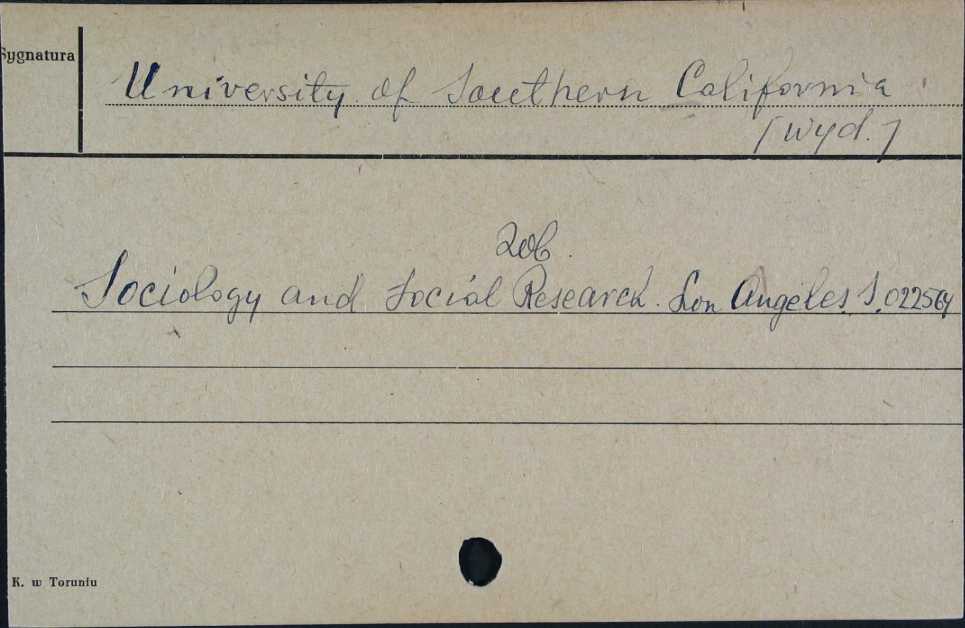 Sygnatura
University of Southern California
[Wyd.]
Zob.
Sociology and Social Research. Los Angeles S.022564
K. w Toruniu